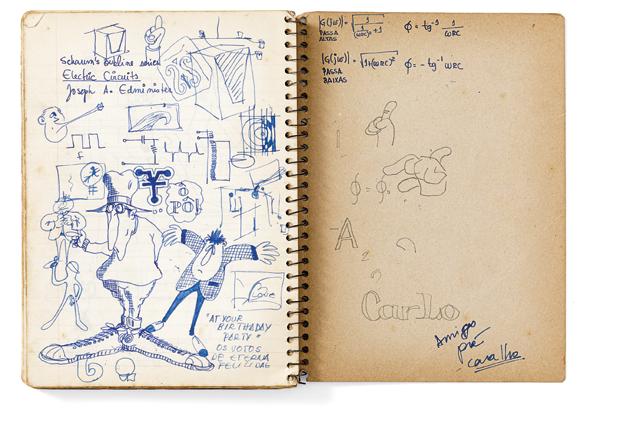 Schaum's outline series
Electric Circuits
Joseph A. Edminister
Ô
PÔ!
Love
"AT YOUR
BIRTHADAY
PARTY"
OS VOTOS
DE ETERNA
FELICIDAD
|G(jω)| = √1/(ωRC)²+1 φ = tg⁻¹ 1/ωRC
PASSA
ALTAS
|G(jω)| = √1+(ωRC)² φ = -tg⁻¹ ωRC
PASSA
BAIXAS
A
Amigo
pra
caralho